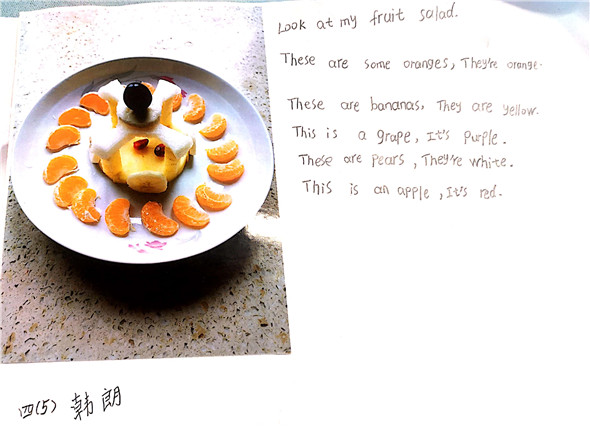 Look at my fruit salad.
These are some oranges, They're orange.
These are bananas, They are yellow.
This is a grape, It's purple.
These are pears, They're white.
This is an apple, It's red.
四(5) 韩朗